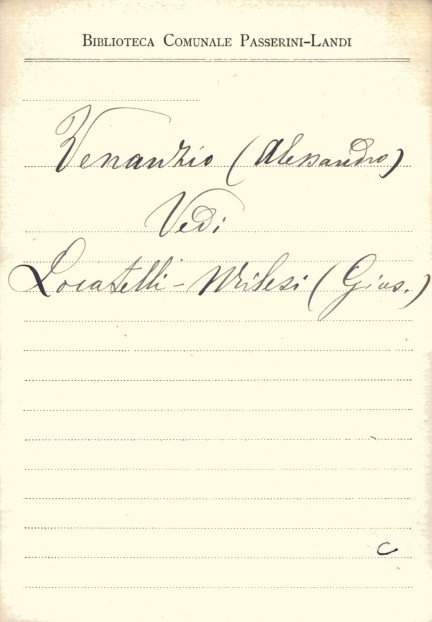 Biblioteca Comunale Passerini-Landi
Venanzio (Alessandro)
Vedi
Locatelli - Milesi (Gius.)
c